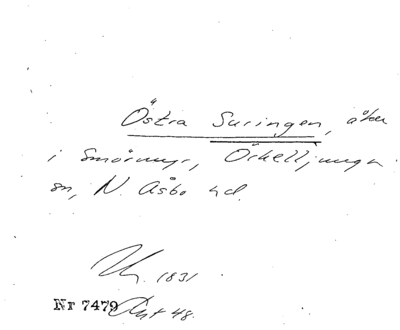 Östra Suringen, åker
i Smörmyr, Örkelljunga
sn, N. Åsbo hd.
1831
Nr 7479 Akt 48.